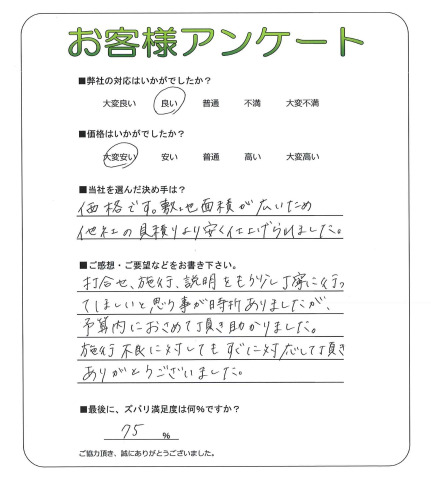 お客様アンケート
■弊社の対応はいかがでしたか？
大変良い 良い 普通 不満 大変不満
■価格はいかがでしたか？
大変安い 安い 普通 高い 大変高い
■当社を選んだ決め手は？
価格です。敷地面積が広いため
他社の見積りより安く仕上げられました。
■ご感想・ご要望などをお書き下さい。
打合せ、施行、説明をもう少し丁寧に行っ
てほしいと思う事が時折ありましたが、
予算内におさめて頂き助かりました。
施行不良に対してもすぐに対応して頂き
ありがとうございました。
■最後に、ズバリ満足度は何%ですか？
75 %
ご協力頂き、誠にありがとうございました。